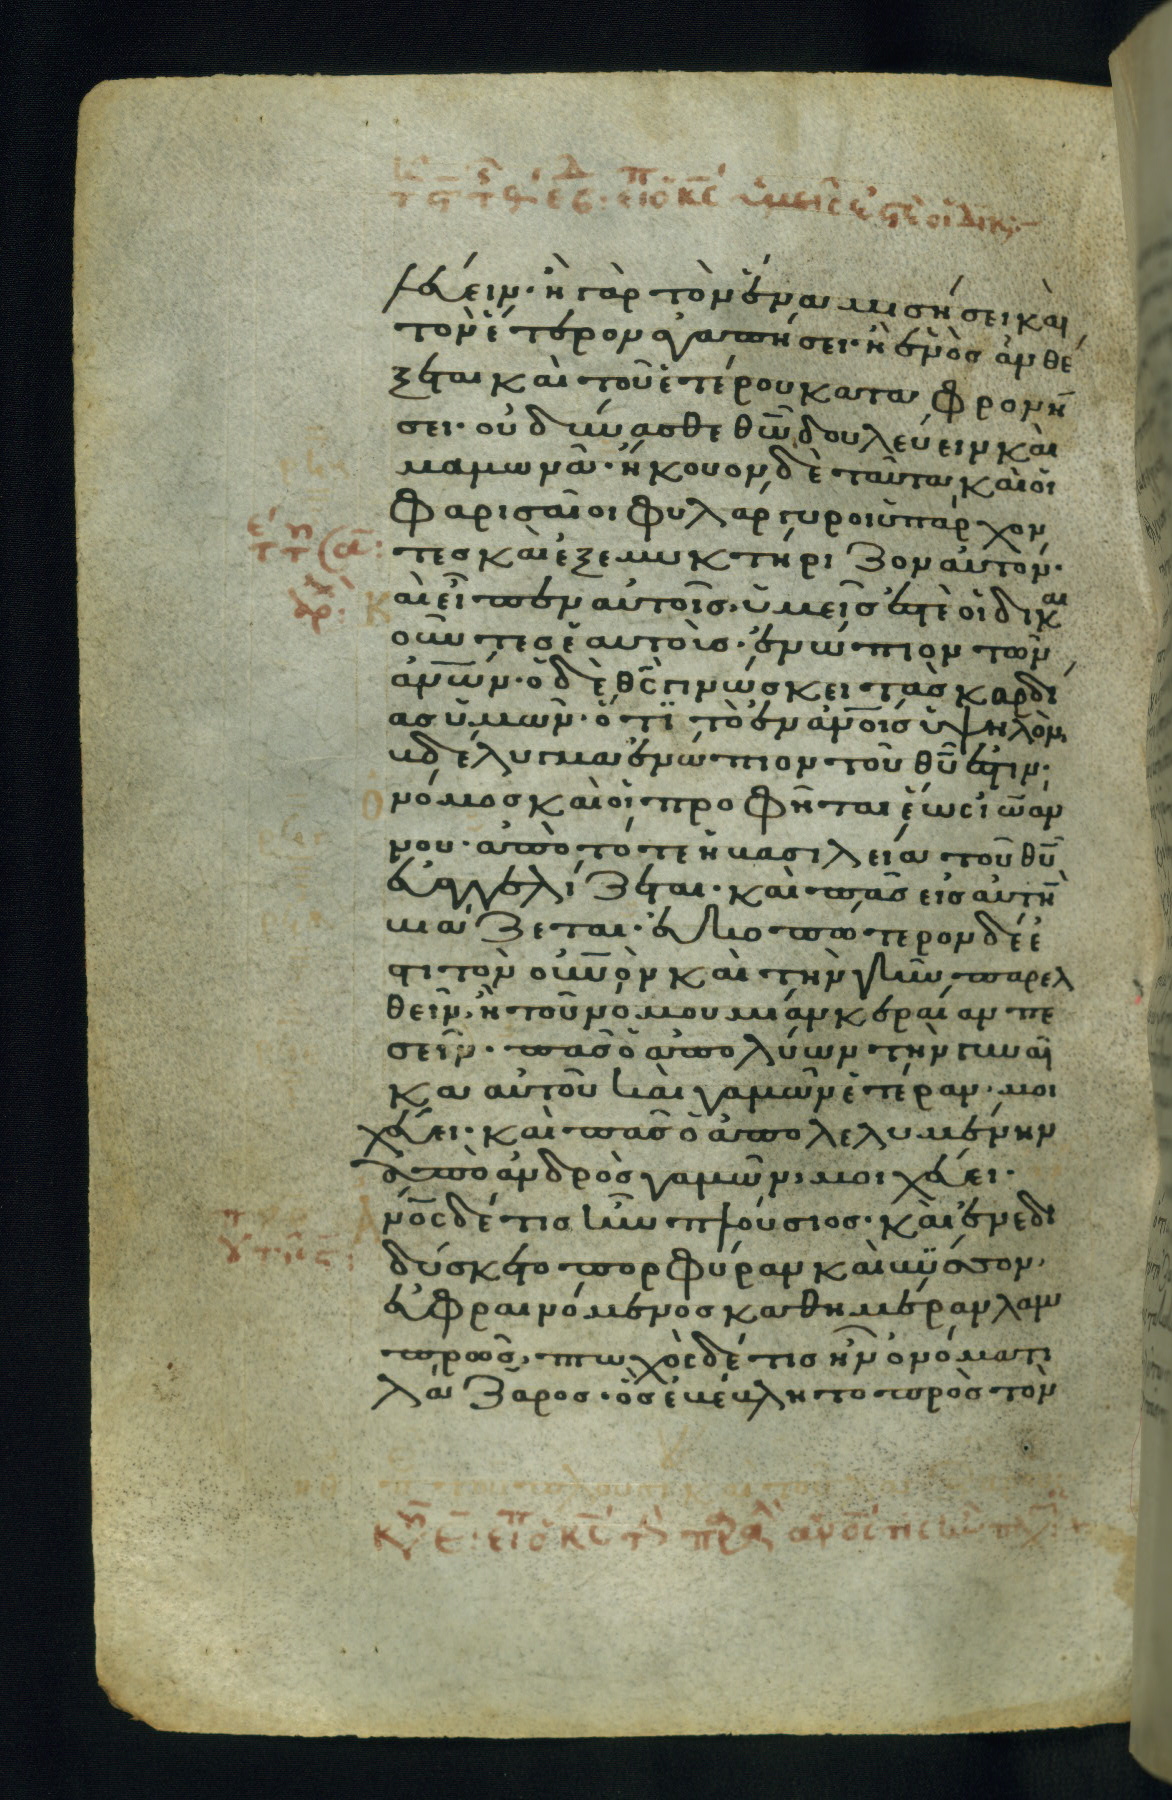 λεύειν· ἢ γὰρ τὸν ἕνα μισήσει καὶ
τὸν ἕτερον ἀγαπήσει· ἢ ἑνὸς ἀνθέ
ξεται καὶ τοῦ ἑτέρου καταφρονή
σει· οὐ δύνασθε θω̅ δουλεύειν καὶ
μαμωνᾶ· ἤκουον δὲ ταῦτα καὶ οἱ
Φαρισαῖοι φυλάργυροι ὑπάρχον
τες καὶ ἐξεμυκτήριζον αὐτόν·
Κ αὶ εἶπεν αὐτοῖς· ὑμεῖς ἐστὲ οἱ δικαι
οῦντες ἑαυτοὺς· ἐνώπιον τῶν
ἀν̅ων· ὁ δὲ θς̅ γινώσκει τὰς καρδί
ας ὑμῶν· ὅτι τὸ ἐν ἀν̅οις ὑψηλὸν
βδέλυγμα ἐνώπιον τοῦ θυ̅ ἐστιν·
Ὁ νόμος καὶ οἱ προφῆται ἕως ἰωάν
νου· ἀπὸ τότε ἡ βασιλεία τοῦ θυ̅
εὐαγγελίζεται· καὶ πᾶς εἰς αὐτὴν
βιάζεται· εὐκοπώτερον δέ ἐ
στι τὸν οὐν̅ὸν καὶ τὴν γῆν παρελ
θεῖν, ἢ τοῦ νόμου μίαν κεραίαν πε
σεῖν· πᾶς ὁ ἀπολύων τὴν γυναῖ
κα αὐτοῦ καὶ γαμῶν ἑτέραν, μοι
χεύει· καὶ πᾶς ὁ ἀπολελυμένην
ἀπὸ ἀνδρὸς γαμῶν, μοιχεύει·
Ἄ ν̅ος δέ τις ἦν πλούσιος· καὶ ἐνεδι
δύσκετο πορφύραν καὶ βύσσον,
εὐφραινόμενος καθημέραν λαμ
πρῶς, πτωχὸς δέ τις ἦν ὀνόματι
λάζαρος· ὃς ἐβέβλητο πρὸς τὸν